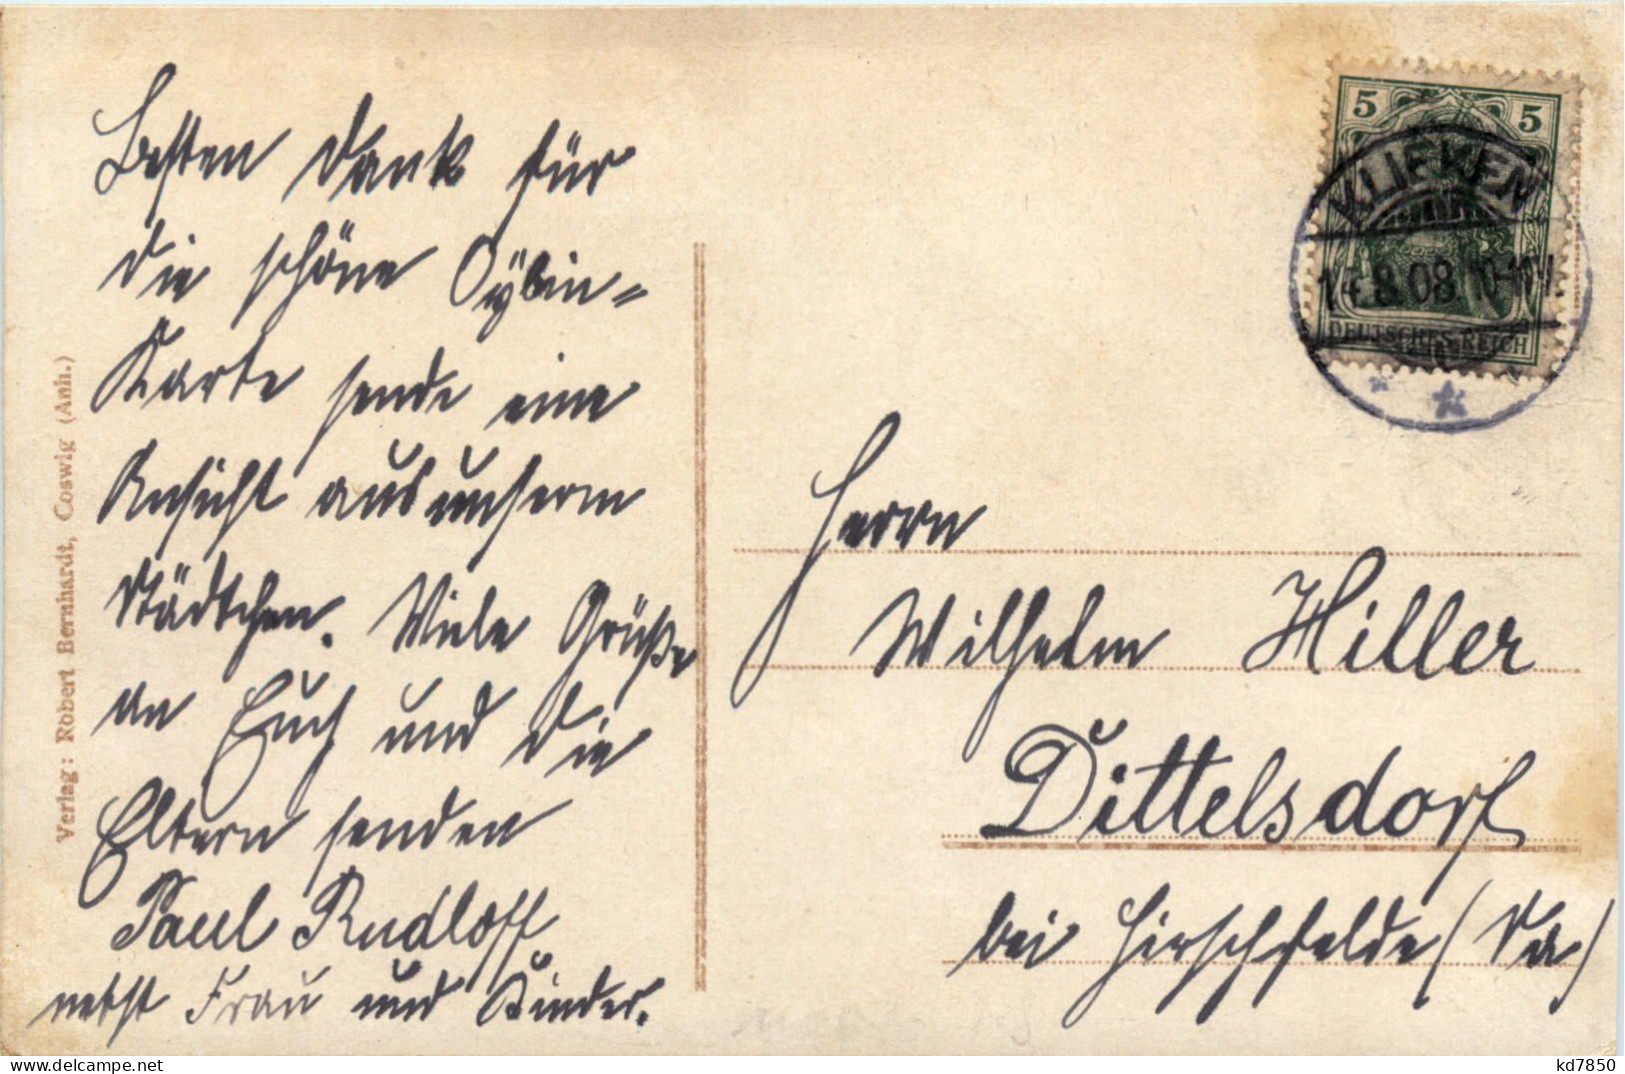 Besten Dank für
die schöne Oybin=
Karte sende eine
Ansicht aus unserm
Städtchen. Viele Grüße
an Euch und die
Eltern senden
Paul Rudloff
nebst Frau und Kinder.
Verlag: Robert Bernhardt, Coswig (Anh.)
5 5
KLIEKEN
14.8.08. 10-11V.
DEUTSCHES REICH
Herrn
Wilhelm Hiller
Dittelsdorf
bei Hirschfelde (Sa)
kd7850